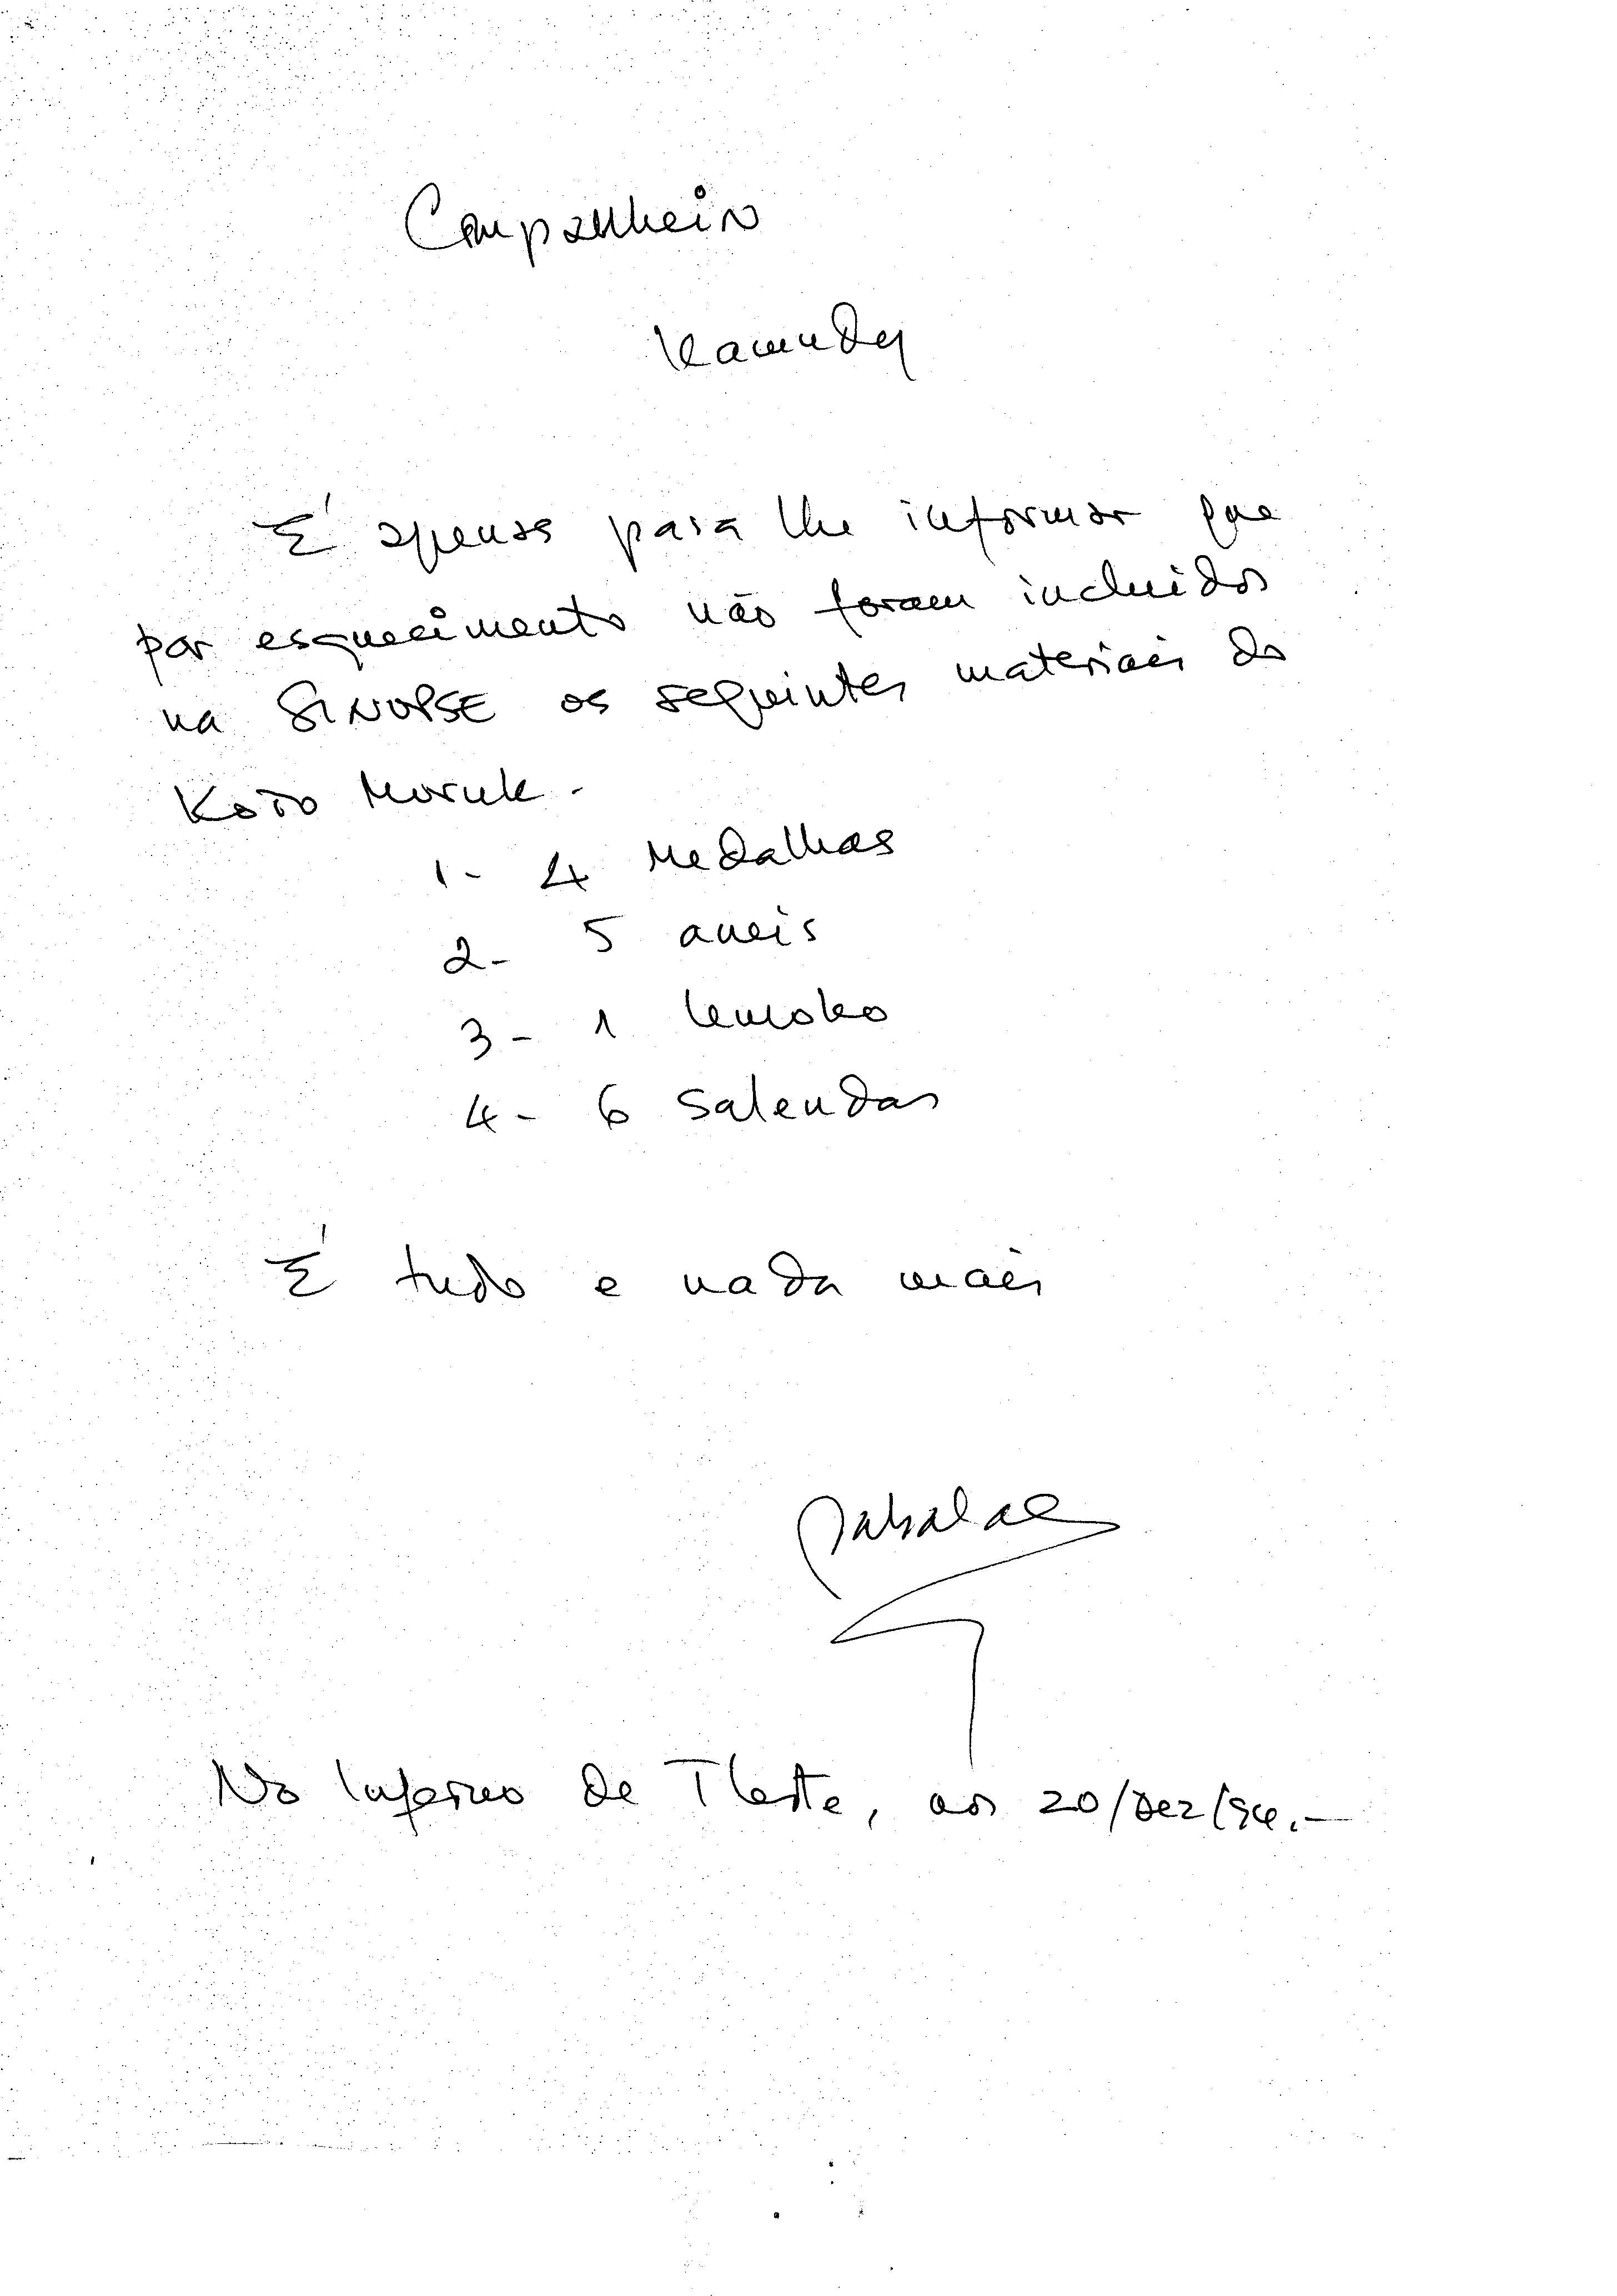 Companheiro
É apenas para lhe informar que
por esquecimento não foram incluidos
na SINOPSE os seguintes materiais do
Koro Moruk.
1- 4 Medalhas
2- 5 aneis
3- 1 kenoko
4- 6 Salendas
É tudo e nada mais
Sabalae
No Inferno de TLeste, aos 20/Dez/94.-